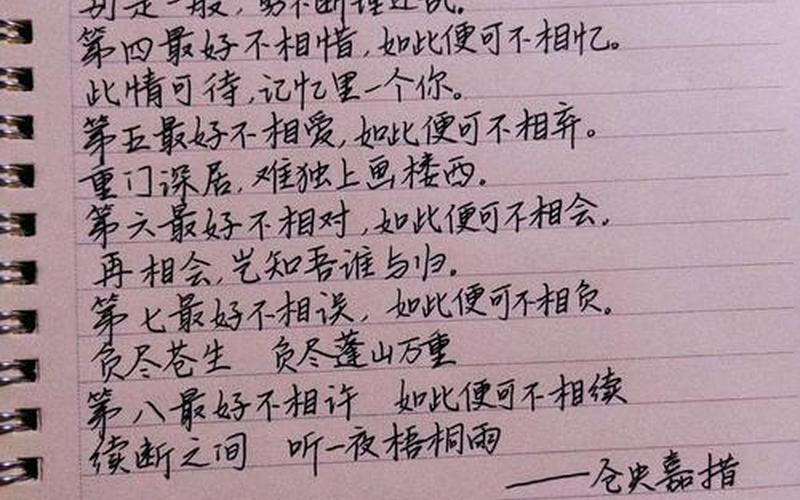 别是一般，剪不断理还乱。
第四最好不相惜，如此便可不相忆。
此情可待，记忆里一个你。
第五最好不相爱，如此便可不相弃。
重门深居，难独上画楼西。
第六最好不相对，如此便可不相会。
再相会，岂知吾谁与归。
第七最好不相误，如此便可不相负。
负尽苍生 负尽蓬山万重
第八最好不相许 如此便可不相续
续断之间 听一夜梧桐雨
——仓央嘉措